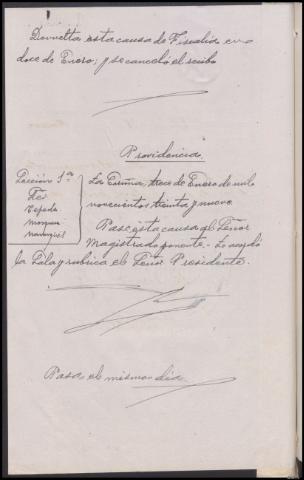 Devuelta esta causa de Fiscalia en
doce de Enero; y se canceló el recibo
Providencia
Sección 1ª
La Coruña, trece de Enero de mil
novecientos treinta y nueve.
Tejada
Pase esta causa al Señor
Magistrado ponente. Lo acordó
la Sala y rubrica el Señor Presidente.
Pasa el mismo dia